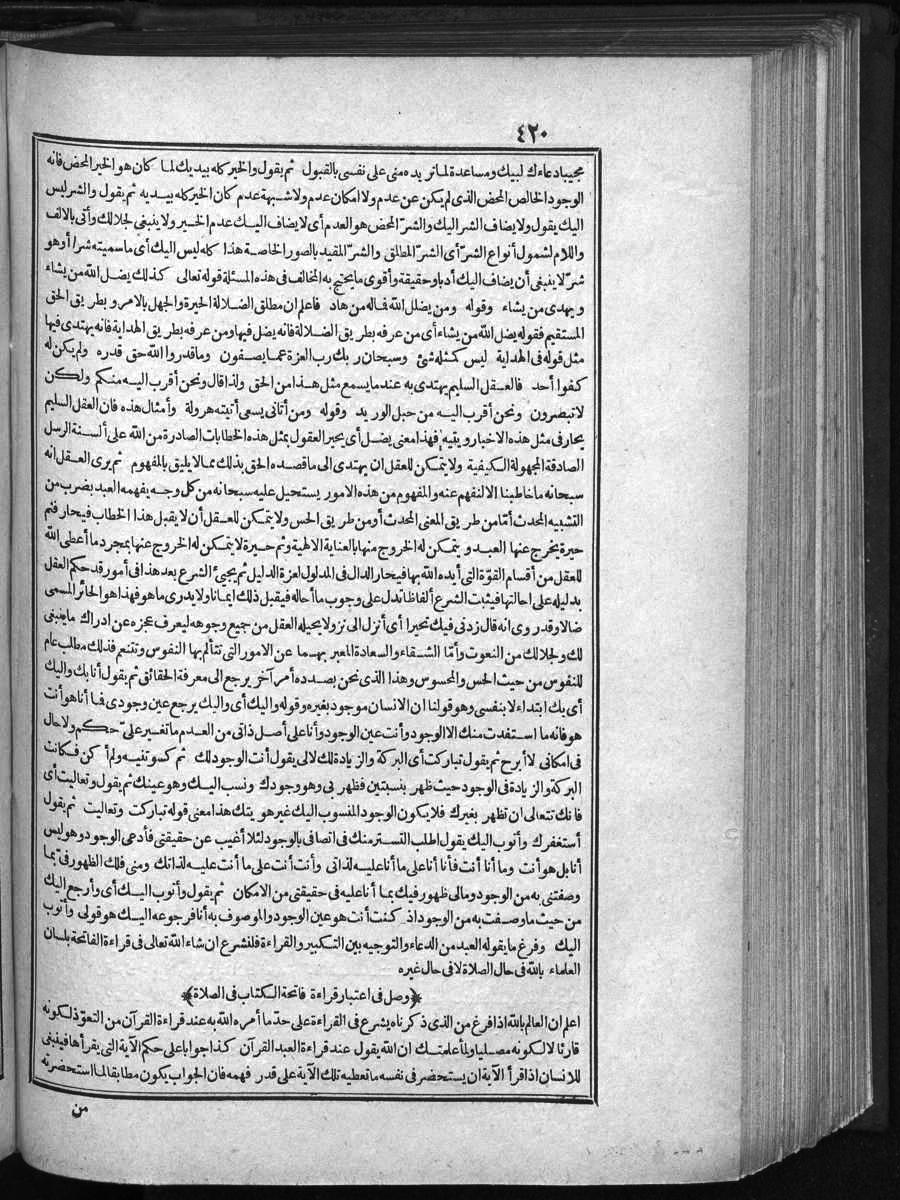 ٤٢٠
مجيبا دعاءك لبيك ومساعدة لما تريده مني على نفسي بالقبول ثم يقول والخير كله بيديك لما كان هو الخير المحض فانه
الوجود الخالص المحض الذي لم يكن عن عدم ولا امكان عدم ولا شبهة عدم كان الخير كله بيديه ثم يقول والشر ليس
اليك يقول ولا يضاف الشر اليك والشرّ المحض هو العدم أي لا يضاف اليك عدم الخير ولا ينبغي لجلالك وأتى بالالف
واللام لشمول أنواع الشرّ أي الشرّ المطلق والشرّ المقيد بالصور الخاصة هذا كله ليس اليك أي ما سميته شرا أو هو
شرّ لا ينبغي أن يضاف اليك أدبا وحقيقة وأقوى ما يحتج به المخالف في هذه المسئلة قوله تعالى كذلك يضل الله من يشاء
ويهدي من يشاء وقوله ومن يضلل الله فما له من هاد فاعلم ان مطلق الضلالة الحيرة والجهل بالامر وبطريق الحق
المستقيم فقوله يضل الله من يشاء أي من عرفه بطريق الضلالة فانه يضل فيها ومن عرفه بطريق الهداية فانه يهتدي فيها
مثل قوله في الهداية ليس كمثله شئ وسبحان ربك رب العزة عما يصفون وما قدروا الله حق قدره ولم يكن له
كفوا أحد فالعقل السليم يهتدي به عند ما يسمع مثل هذا من الحق ولذا قال ونحن أقرب اليه منكم ولكن
لا تبصرون ونحن أقرب اليه من حبل الوريد وقوله ومن أتاني يسعى أتيته هرولة وأمثال هذه فان العقل السليم
يحار في مثل هذه الاخبار ويتيه فهذا معنى يضل أي يحير العقول بمثل هذه الخطابات الصادرة من الله على ألسنة الرسل
الصادقة المجهولة الكيفية ولا يتمكن للعقل ان يهتدي الى ما قصده الحق بذلك مما لا يليق بالمفهوم ثم يرى العقل انه
سبحانه ما خاطبنا الا لنفهم عنه والمفهوم من هذه الامور يستحيل عليه سبحانه من كل وجه يفهمه العبد بضرب من
التشبيه المحدث أمّا من طريق المعنى المحدث أو من طريق الحس ولا يتمكن للعقل أن لا يقبل هذا الخطاب فيحار فثم
حيرة يخرج عنها العبد ويتمكن له الخروج منها بالعناية الالهية وثم حيرة لا يتمكن له الخروج عنها بمجرد ما أعطى الله
للعقل من أقسام القوّة التي أيده الله بها فيحار الدال في المدلول لعزة الدليل ثم يجيئ الشرع بعد هذا في أمور قد حكم العقل
بدليله على احالتها فيثبت الشرع ألفاظا تدل على وجوب ما أحاله فيقبل ذلك ايمانا ولا يدري ما هو فهذا هو الحائر المسمى
ضالا وقد روى انه قال زدني فيك تحيرا أي أنزل الى نزولا يحيله العقل من جميع وجوهه ليعرف عجزه عن ادراك ما ينبغي
لك ولجلالك من النعوت وأمّا الشقاء والسعادة المعبر بهما عن الامور التي تتألم بها النفوس وتتنعم فذلك مطلب عام
للنفوس من حيث الحس والمحسوس وهذا الذي نحن بصدده أمر آخر يرجع الى معرفة الحقائق ثم يقول أنا بك واليك
أي بك ابتداء لا بنفسي وهو قولنا ان الانسان موجود بغيره وقوله واليك أي واليك يرجع عين وجودي فما أنا هو أنت
هو فانه ما استفدت منك الا الوجود وأنت عين الوجود وأنا على أصل ذاتي من العدم ما تغير عليّ حكم ولا حال
في امكاني لا أبرح ثم يقول تباركت أي البركة والزيادة لك لا لي يقول أنت الوجود لك ثم كسوتنيه ولم أكن فكانت
البركة والزيادة في الوجود حيث ظهر بنسبتين فظهر بي وهو وجودك ونسب اليك وهو عينك ثم يقول وتعاليت أي
فانك تتعالى ان تظهر بغيرك فلا يكون الوجود المنسوب اليك غير هويتك هذا معنى قوله تباركت وتعاليت ثم يقول
أستغفرك وأتوب اليك يقول اطلب التستر منك في اتصافي بالوجود لئلا أغيب عن حقيقتي فأدعي الوجود وهو ليس
أنا بل هو أنت وما أنا أنت فأنا أنا على ما أنا عليه لذاتي وأنت أنت على ما أنت عليه لذاتك ومني فلك الظهور فيّ بما
وصفتني به من الوجود ومالي ظهور فيك بما أنا عليه في حقيقتي من الامكان ثم يقول وأتوب اليك أي وأرجع اليك
من حيث ما وصفت به من الوجود اذ كنت أنت هو عين الوجود والموصوف به أنا فرجوعه اليك هو قولي وأتوب
اليك وفرغ ما يقوله العبد من الدعاء والتوجيه بين التكبير والقراءة فلنشرع ان شاء الله تعالى في قراءة الفاتحة بلسان
العلماء بالله في حال الصلاة لا في حال غيره
﴿وصل في اعتبار قراءة فاتحة الكتاب في الصلاة﴾
اعلم ان العالم بالله اذا فرغ من الذي ذكرناه يشرع في القراءة على حدّ ما أمره الله به عند قراءة القرآن من التعوّذ لكونه
قارئا لا لكونه مصليا ولما أعلمتك ان الله يقول عند قراءة العبد القرآن كذا جوابا على حكم الآية التي يقرأها فينبغي
للانسان اذا قرأ الآية ان يستحضر في نفسه ما تعطيه تلك الآية على قدر فهمه فان الجواب يكون مطابقا لما استحضرته
من